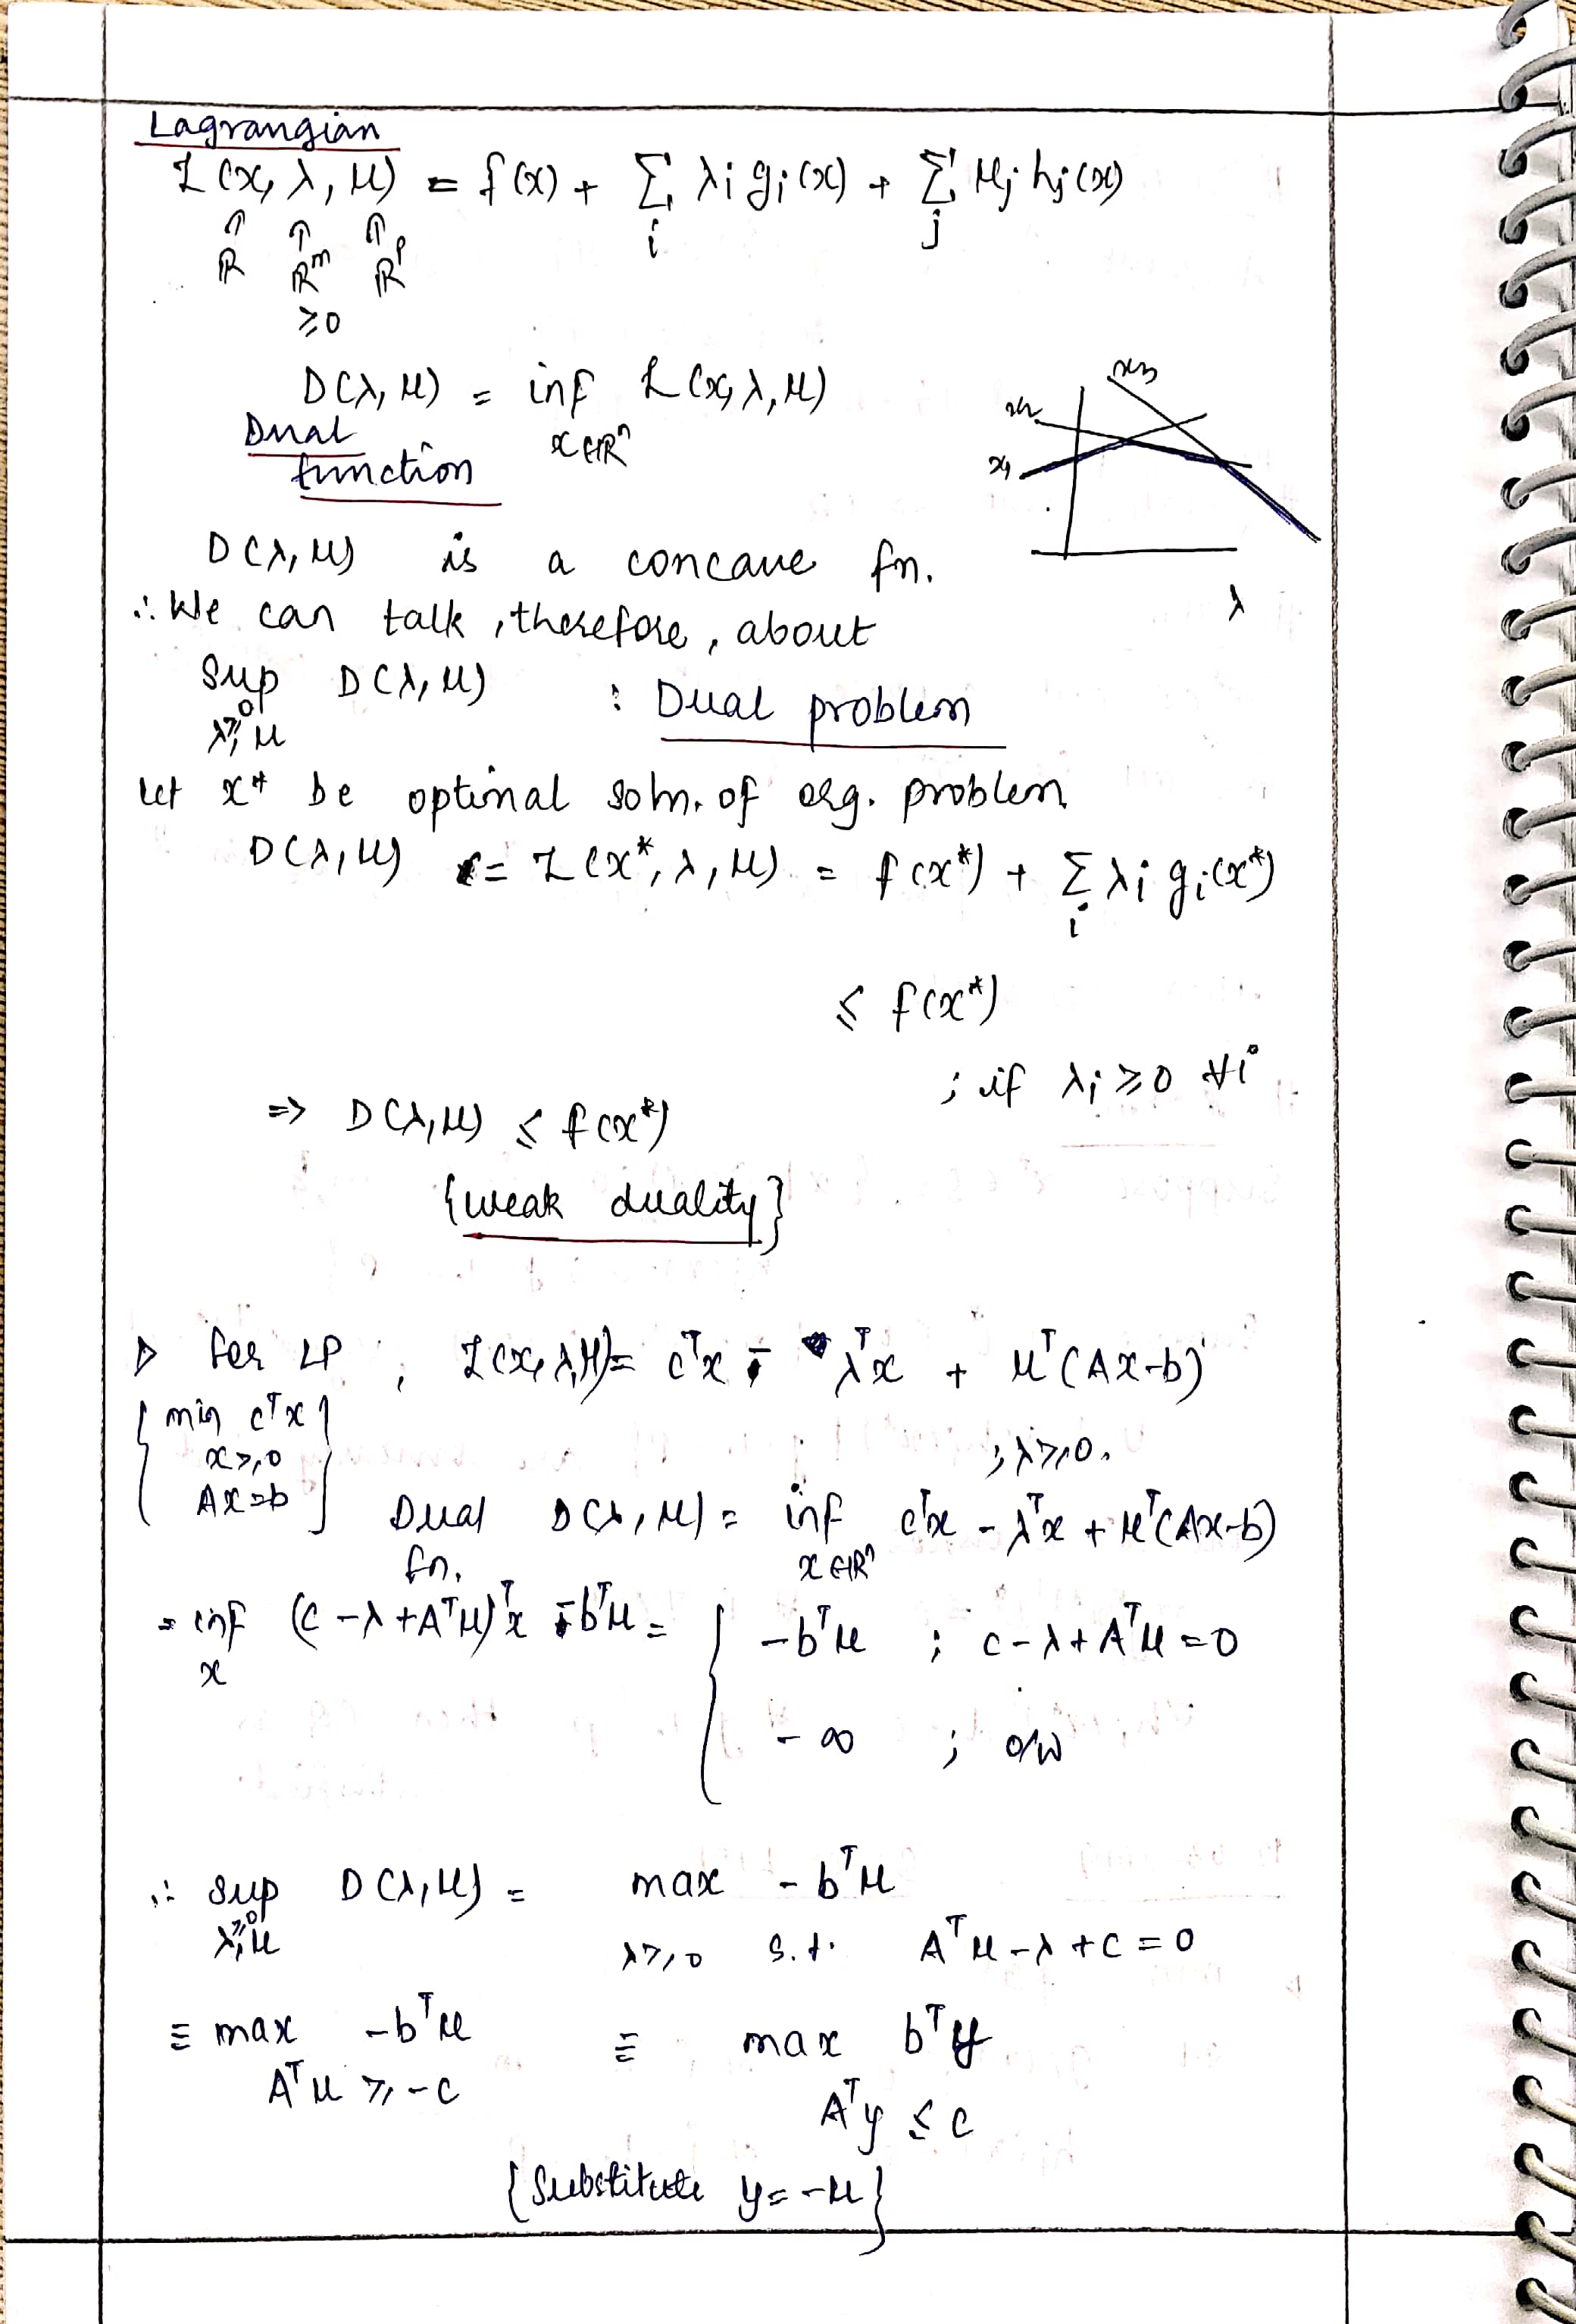 Lagrangian
L(x, λ, μ) = f(x) + Σ_i λi gi(x) + Σ_j μj hj(x)
↑ ↑ ↑
R R^m R^p
≥0
D(λ, μ) = inf_{x∈R^n} L(x, λ, μ)
Dual function
x1 x2 x3 λ
D(λ, μ) is a concave fn.
∴ We can talk, therefore, about
sup_{λ≥0, μ} D(λ, μ) : Dual problem
let x* be optimal soln. of org. problem
D(λ, μ) = L(x*, λ, μ) = f(x*) + Σ_i λi gi(x*)
≤ f(x*)
; if λi ≥ 0 ∀i
⇒ D(λ, μ) ≤ f(x*)
{weak duality}
▷ For LP ; L(x, λ, μ) = c^T x - λ^T x + μ^T (Ax-b)
; λ ≥ 0.
{min c^T x
x ≥ 0
Ax = b}
Dual fn. D(λ, μ) = inf_{x∈R^n} c^T x - λ^T x + μ^T (Ax-b)
= inf_x (c - λ + A^T μ)^T x - b^T μ = { -b^T μ ; c - λ + A^T μ = 0
-∞ ; o/w
∴ sup_{λ≥0, μ} D(λ, μ) = max -b^T μ
λ ≥ 0 s.t. A^T μ - λ + c = 0
≡ max -b^T μ ≡ max b^T y
A^T μ ≥ -c A^T y ≤ c
{Substitute y = -μ}